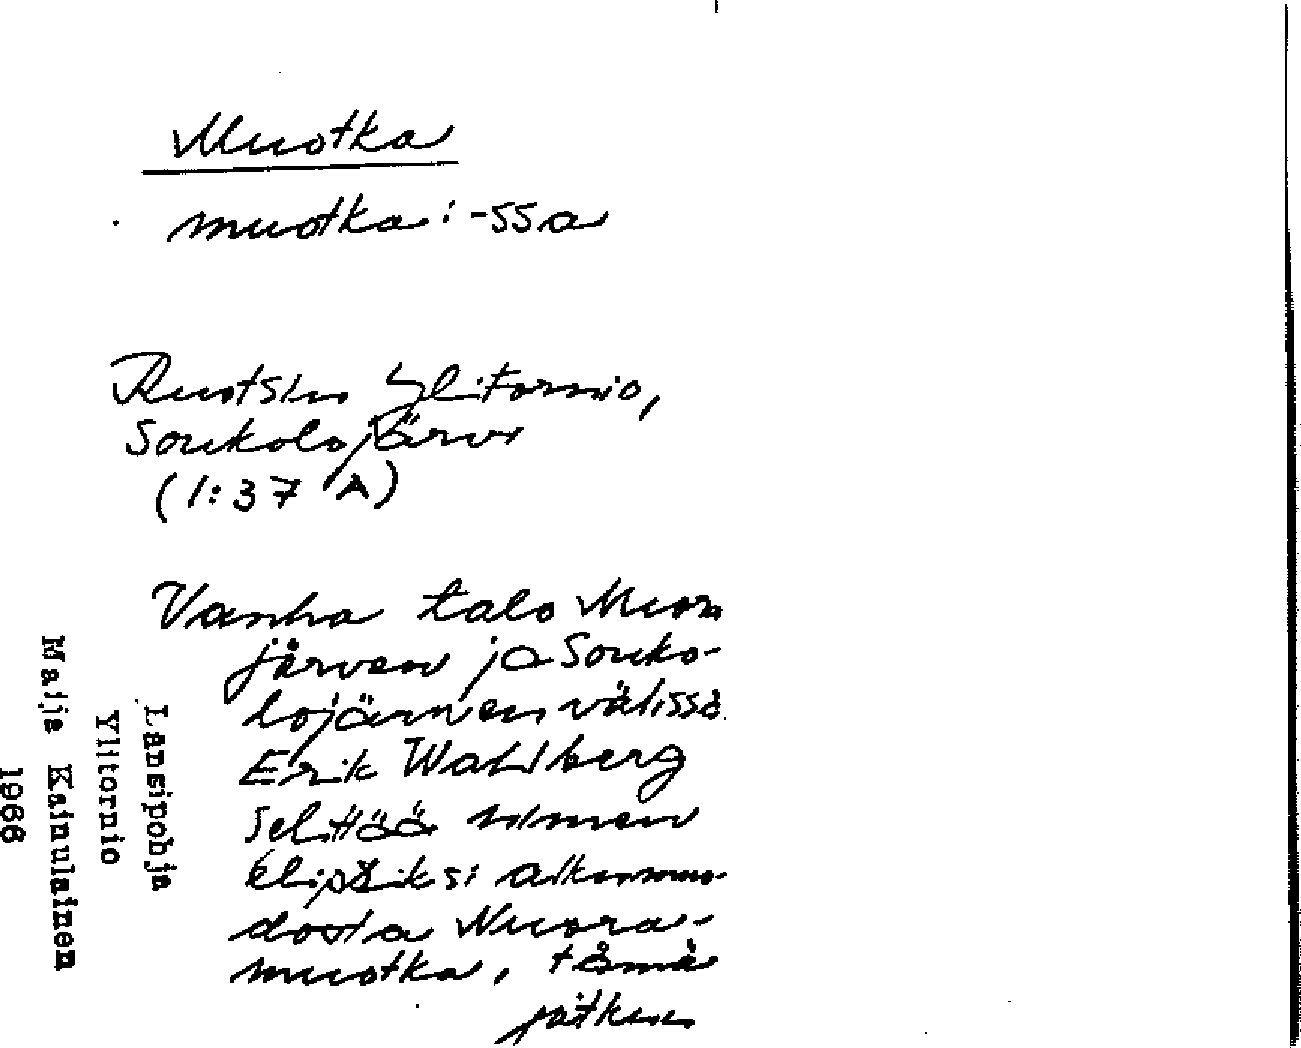 Muotka
muotka: -ssa
Ruotsin Ylitornio,
Soukolojärvi
(1:37 A)
Vanha talo Muon
järven ja Souko-
lojärven välissä
Erik Wahlberg
selittää nimen
elipsiksi alkumuo-
dosta Nuora-
muotka, tämä
jatkuu
Länsipohja
Ylitornio
Maija Kainulainen
1966